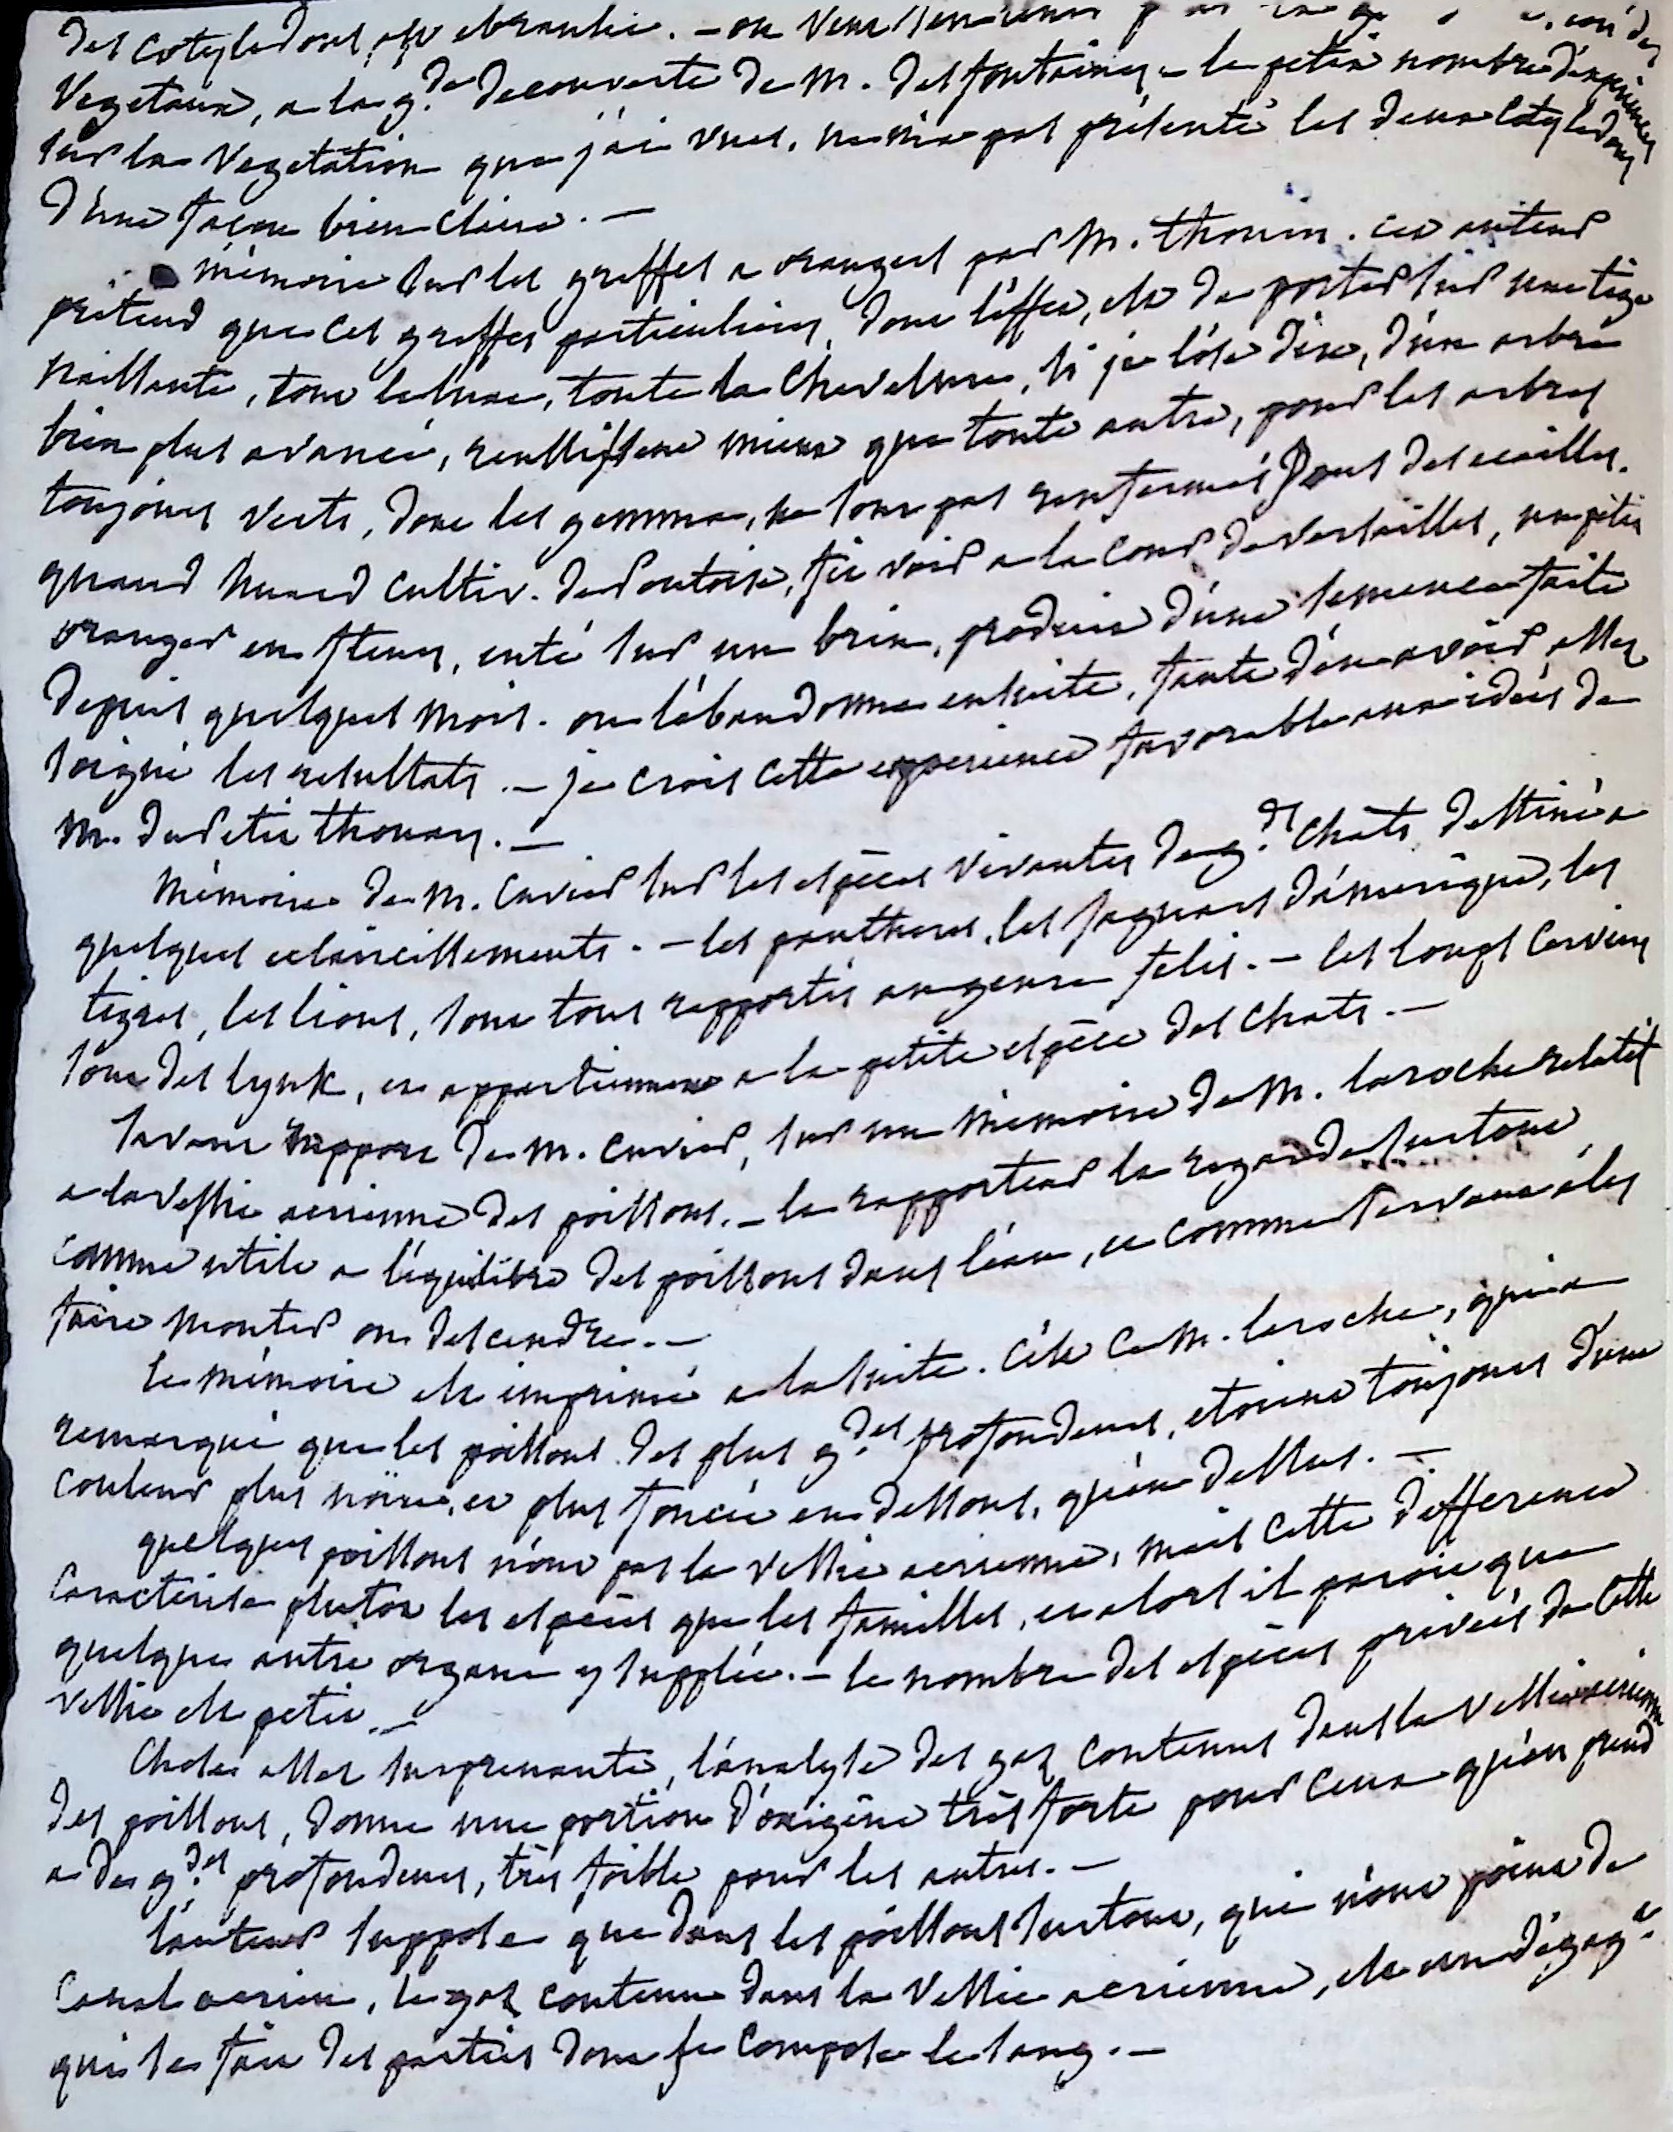 des cotyledons est ebranlée. - on veut
vegetaux, a la g.de decouverte de M. desfontaines - le petit nombre d'experiences
sur la vegetation que j'ai vues, ne m'a pas présenté les deux cotyledons
d'une façon bien claire. -
mémoire sur les greffes a oranges par M. thouin. cet auteur
prétend que ces greffes particulieres, dont l'effet, est de porter sur une tige
naissante, tout le luxe, toute la chevelure, si je l'ose dire, d'un arbre
bien plus avancé, reussissent mieux que toute autre, pour les arbres
toujours verts, dont les gemma, ne sont pas renfermés sous des ecailles.
quand huard cultiv. de Pontoise, fit voir a la cour de versailles, un petit
oranger en fleurs, enté sur un brin, produit d'une semence faite
depuis quelques mois. on l'abandonna ensuite, faute d'en avoir assez
soigné les resultats. - je crois cette experience favorable aux idées de
M. du Petit thouars. -
Mémoire de M. Cuvier sur les especes vivantes de g.ds chats destiné a
quelques eclaircissements. - les pantheres, les jaguars d'amerique, les
tigres, les lions, sont tous rapportés au genre felis. - les loups cerviers
sont des lynk, et appartiennent a la petite espèce des chats. -
savant rapport de M. Cuvier, sur un mémoire de M. laroche relatif
a la vessie aerienne des poissons. - le rapporteur la regarde surtout
comme utile a l'équilibre des poissons dans l'eau, et comme servant a les
faire monter ou descendre. -
Le mémoire est imprimé a la suite. C'est ce M. laroche, qui a
remarqué que les poissons des plus g.des profondeurs, etoient toujours d'une
couleur plus noire, et plus foncée en dessous, qu'en dessus. -
quelques poissons n'ont pas la vessie aerienne, mais cette difference
caracterise plutot les especes que les familles, et alors il paroit que
quelque autre organe y supplée. - le nombre des espèces privées de cette
vessie est petit. -
Chose assez surprenante, l'analyse des gaz contenus dans la vessie aerienne
des poissons, donne une portion d'oxigène très forte pour ceux qu'on prend
a de g.des profondeurs, très foible pour les autres. -
l'auteur suppose que dans les poissons surtout, qui n'ont point de
canal aerien, le gaz contenu dans la vessie aerienne, est un dégag.t
qui se fait des parties dont se compose le sang. -